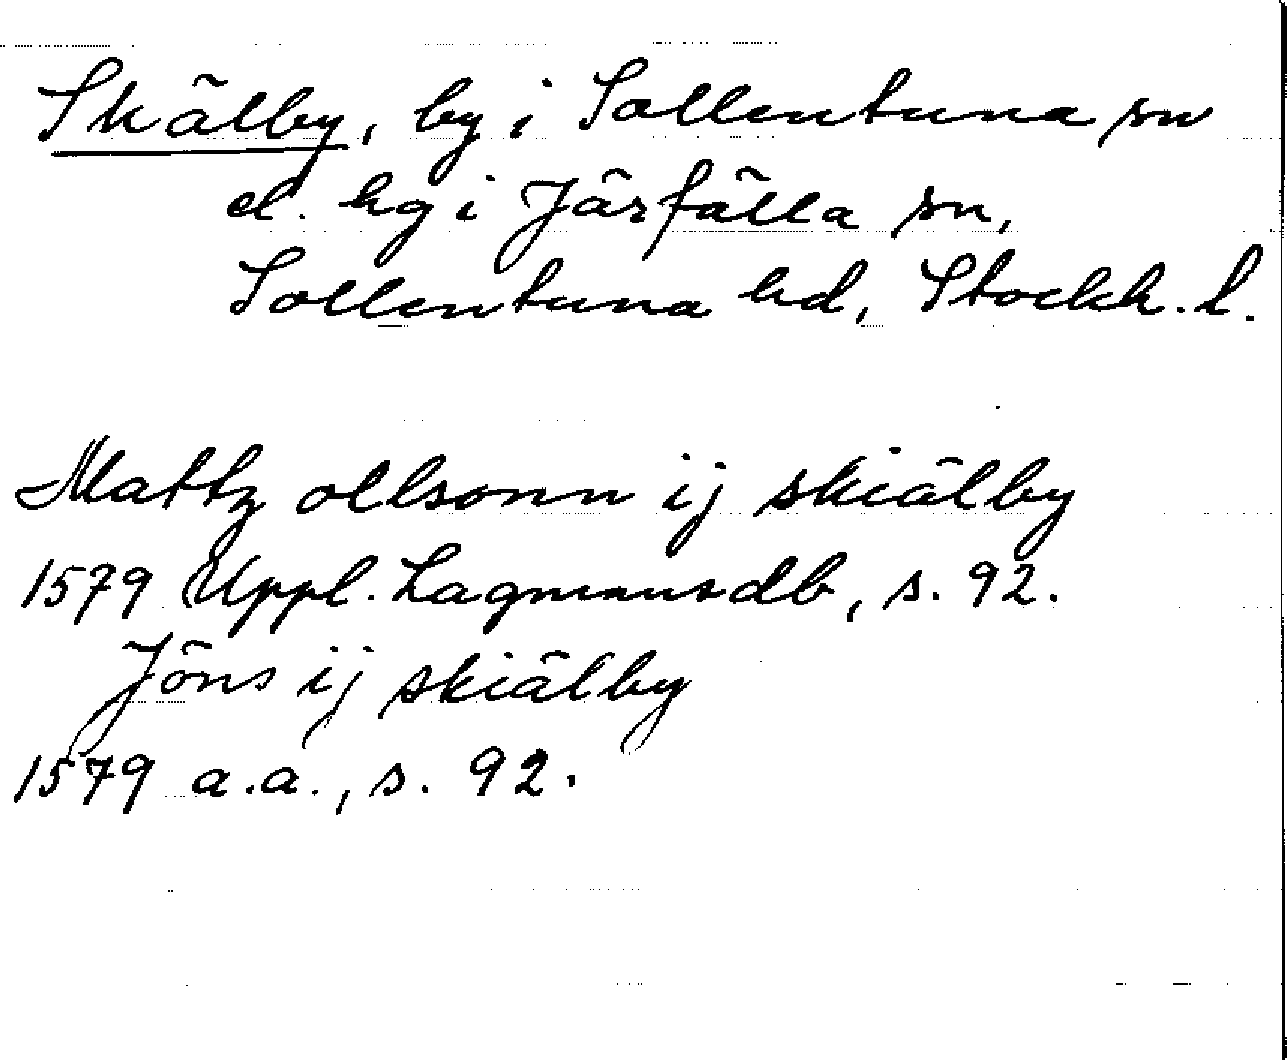 Skälby, by i Sollentuna sn
el. hg i Järfälla sn,
Sollentuna hd, Stockh. l.
Mattz ollsonn ij skiälby
1579 Uppl. Lagmansdb, s. 92.
Jöns ij skiälby
1579 a.a., s. 92.